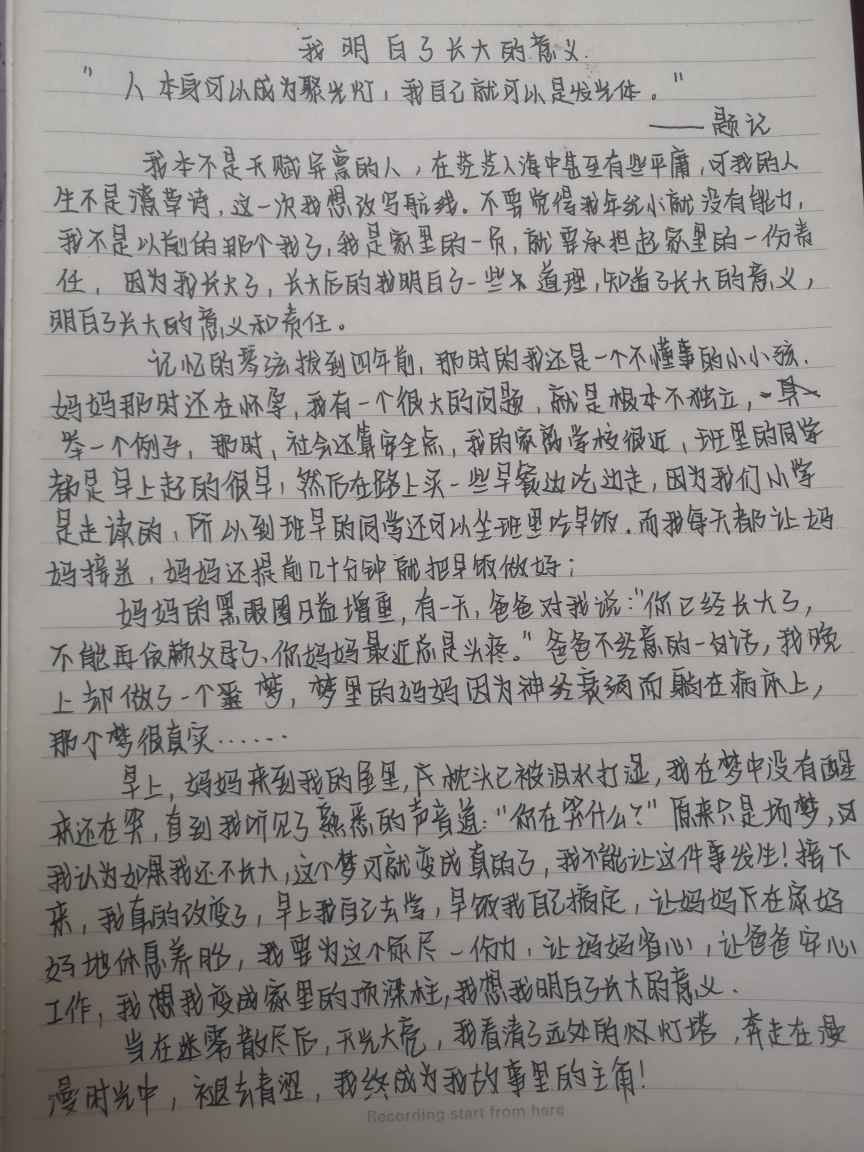 我明白了长大的意义.
"人本身可以成为聚光灯，我自己就可以是发光体。"
——题记
我本不是天赋异禀的人，在茫茫人海中甚至有些平庸，可我的人
生不是潦草诗，这一次我想改写航线。不要觉得我年纪小就没有能力，
我不是以前的那个我了，我是家里的一员，就要承担起家里的一份责
任，因为我长大了，长大后的我明白了一些道理，知道了长大的意义，
明白了长大的意义和责任。
记忆的琴弦拨到四年前，那时的我还是一个不懂事的小小孩.
妈妈那时还在怀孕，我有一个很大的问题，就是根本不独立，
举一个例子，那时，社会还算安全点，我的家离学校很近，班里的同学
都是早上起的很早，然后在路上买一些早餐边吃边走，因为我们小学
是走读的，所以到班早的同学还可以坐班里吃早饭.而我每天都让妈
妈接送，妈妈还提前几十分钟就把早饭做好；
妈妈的黑眼圈日益增重，有一天，爸爸对我说："你已经长大了，
不能再依赖父母了、你妈妈最近总是头疼。"爸爸不经意的一句话，我晚
上却做了一个噩梦，梦里的妈妈因为神经衰弱而躺在病床上，
那个梦很真实……
早上，妈妈来到我的屋里，枕头已被泪水打湿，我在梦中没有醒
来还在哭，直到我听见了熟悉的声音道："你在哭什么？"原来只是场梦，
我认为如果我还不长大，这个梦可就变成真的了，我不能让这件事发生！接下
来，我真的改变了，早上我自己去学，早饭我自己搞定，让妈妈在家好
好地休息养胎，我要为这个家尽一份力，让妈妈省心，让爸爸安心
工作，我想我变成家里的顶梁柱，我想我明白了长大的意义.
当在迷雾散尽后，天光大亮，我看清了远处的灯塔，奔走在漫
漫时光中，褪去青涩，我终成为我故事里的主角！
Recording start from here